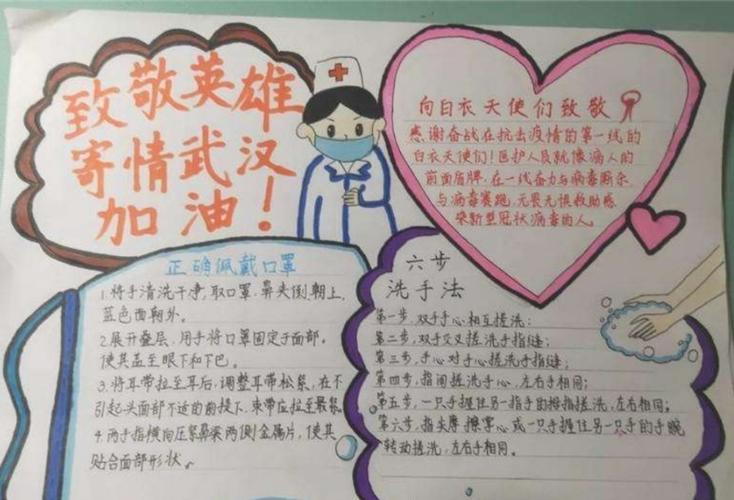 致敬英雄
寄情武汉
加油！
向白衣天使们致敬
感谢奋战在抗击疫情的第一线的
白衣天使们！医护人员就像病人的
前面盾牌，在一线奋力与病毒厮杀，
与病毒赛跑，无畏无惧救助感
染新型冠状病毒的人。
正确佩戴口罩
1.将手清洗干净，取口罩，鼻夹侧朝上，
蓝色面朝外。
2.展开叠层，用手将口罩固定于面部。
使其盖至眼下和下巴。
3.将耳带拉至耳后，调整耳带松紧，在不
引起头面部不适的前提下，束带应拉至最紧。
4.两手指横向压紧鼻梁两侧金属片，使其
贴合面部形状。
六步
洗手法
第一步，双手手心相互搓洗；
第二步，双手交叉搓洗手指缝；
第三步，手心对手心搓洗手指缝；
第四步，指间搓洗手心，左右手相同；
第五步，一只手握住另一指手的拇指搓洗，左右同；
第六步，指尖摩擦掌心或一只手握住另一只手的手腕
转动搓洗，左右手相同。